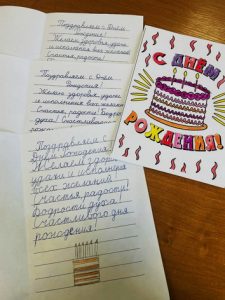 Поздравляем с Днём
Рождения!
Желаем здоровья, удачи
и исполнения всех желаний!
Счастья, радости!
Поздравляем с Днём
Рождения!
Желаем здоровья, удачи
и исполнения всех желаний!
Счастья, радости! Бодрости
духа! Счастливого
Поздравляем с
Днём рождения!
Желаем здоровья
удачи и исполнения
всех желаний!
Счастья, радости!
Бодрости духа!
Счастливого дня
рождения!
С ДНЁМ
РОЖДЕНИЯ!